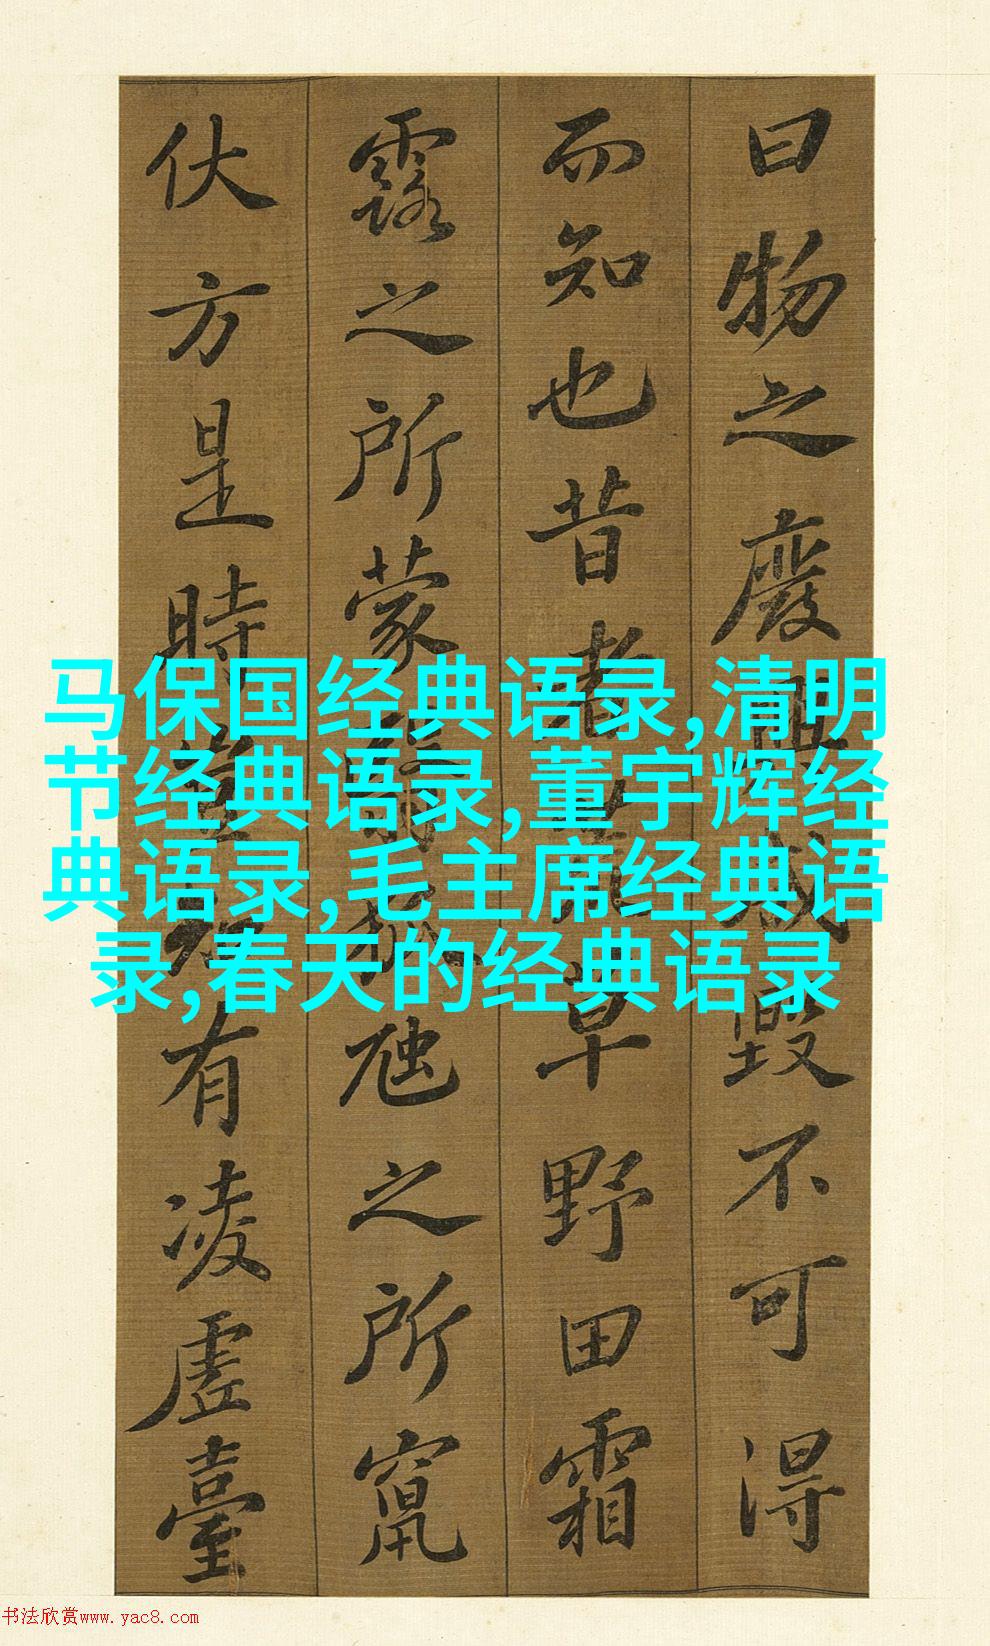 曰物之廢興成毀不可得
而知也昔者荒草野田霜
露之所蒙翳狐虺之所竄
伏方是時豈知有凌虛臺
马保国经典语录,清明
节经典语录,董宇辉经
典语录,毛主席经典语
录,春天的经典语录
书法欣赏www.yac8.com